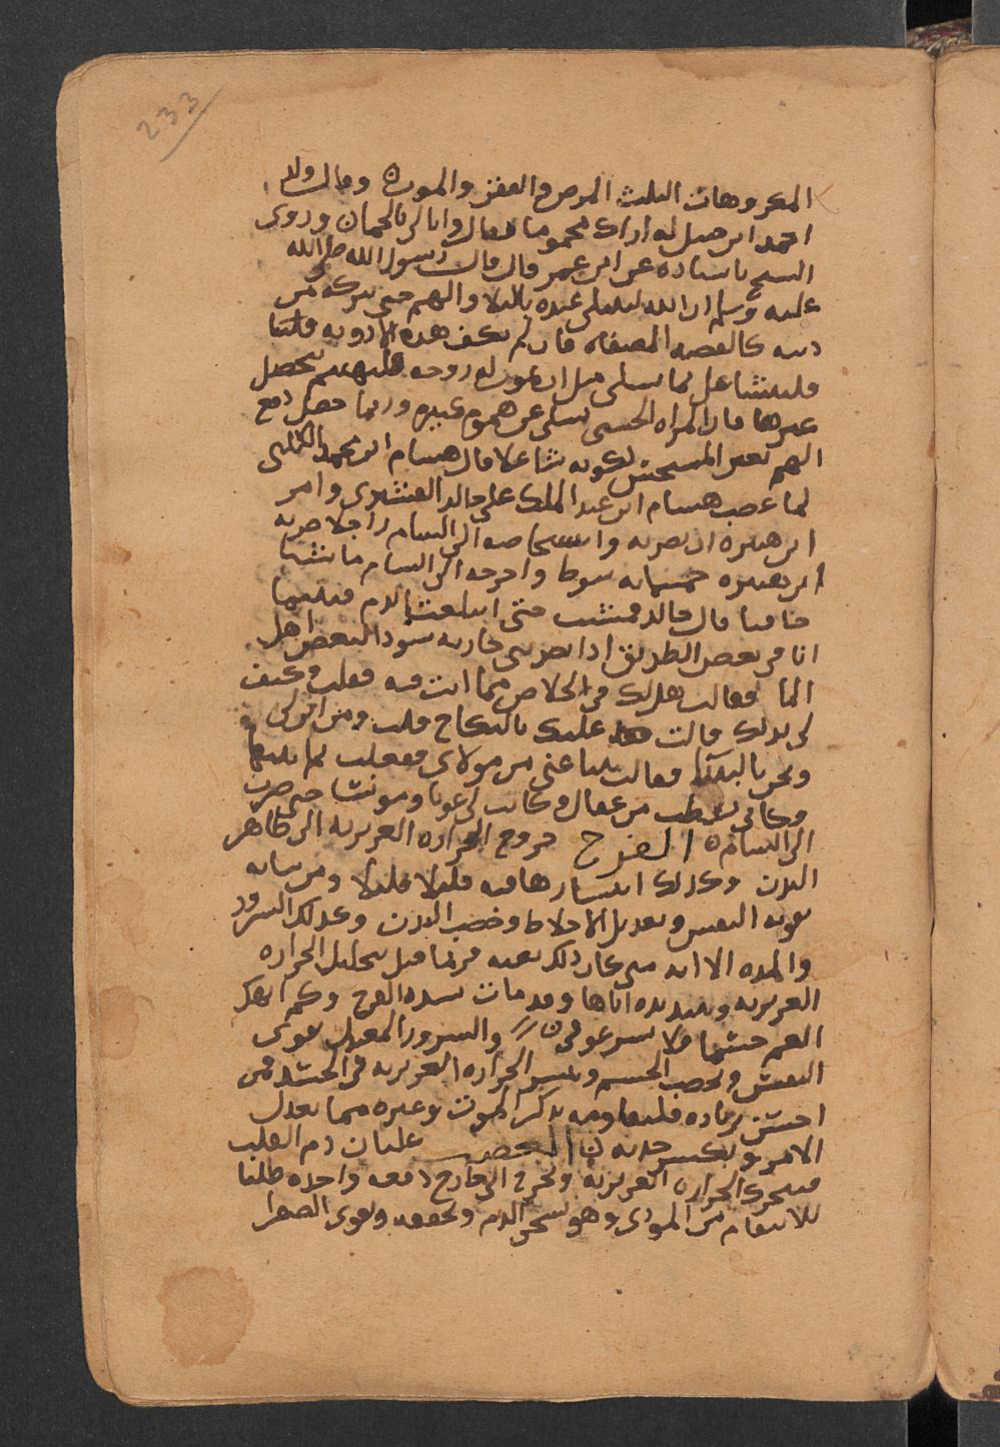 233
المكروهات الثلث المرض والفقر والموت وقال ولد
احمد ابن حنبل له اراك مهموما فقال وانا لربالحمان وروى
الشيخ باسناده عن ابن عمر قال قال رسول الله صلى الله
عليه وسلم ان الله ليبتلى عبده بالبلا والهم حتى يتركه من
ذنبه كالفضه المصفاه فان لم يكف هذه الادويه قلنا
فليتشاغل بما يسلى مثل ان
غيرها فان المراه الحسنى تسلى عن هموم كثيره وربما حصل دفع
الهم بغير المستحسن لكونه شاغلا قال هشام ابن محمد الكلبى
لما غضب هشام ابن عبد الملك على خالد القشيرى وامر
ابن هبيره ان يضربه واشخاصه الى الشام راجلا ضربه
ابن هبيره خمسمايه سوط واخرجه الى الشام ماشيا
حافيا قال خالد فمشيت حتى انتعلت الدم فبينما
انا فى بعض الطريق اذا بصرتنى جاريه سودا لبعض اهل
الما فقالت هل لك فى الخلاص مما انت فيه فقلت وكيف
لى بذلك قالت عليك بالنكاح قلت ومن اين لى
ونحن بالبدا فقالت تبتاعنى من مولاى ففعلت
وكانى نشطت من عقال وكانت لى عونا ومونسا حتى صرت
الى الشام الفرح خروج الحراره الغريزيه الى ظاهر
البدن وكذلك انتشارها فيه قليلا قليلا ومن شانه
تقويه النفس وتعديل الاخلاط وخصب البدن وكذلك السرور
واللذه الا انه متى كان ذلك بغته فربما قتل بتحليل الحراره
الغريزيه وتبديده اياها وقد مات بشده الفرح وكم اهلك
الغم حتفا فلا تسرعو فى ن والسرور المعتدل يقوى
النفس ويخصب الجسم وينشر الحراره الغريزيه فى الجسد فمن
احس زياده فليقاومه بذكر الموت وغيره مما يعدل
الامر ويكسر حدته ن الغضب غليان دم القلب
فتتحرك الحراره الغريزيه وتخرج الى خارج دفعه واحده طلبا
للانتقام من الموذى وهو يسخن الدم ويجففه ويقوى الصفرا